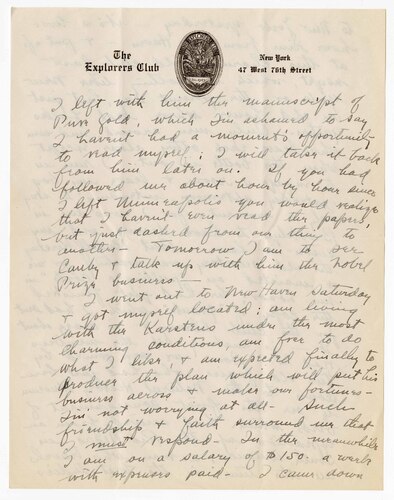 The
Explorers Club
New York
47 West 76th Street
I left with him the manuscript of
Pure Gold, which I'm ashamed to say
I haven't had a moment's opportunity
to read myself; I will take it back
from him later on. If you had
followed me about hour by hour since
I left Minneapolis you would realize
that I haven't even read the papers,
but just dashed from one thing to
another - Tomorrow I am to see
Canby & talk up with him the Nobel
Prize business -
I went out to New Haven Saturday
& got myself located; am living
with the Karstens under the most
charming conditions, am free to do
what I like, & am expected finally to
produce the plan which will put his
business across & make our fortunes -
I'm not worrying at all - Such
friendship & faith surround me that
I must respond - In the meanwhile
I am on a salary of $150. a week
with expenses paid - I came down